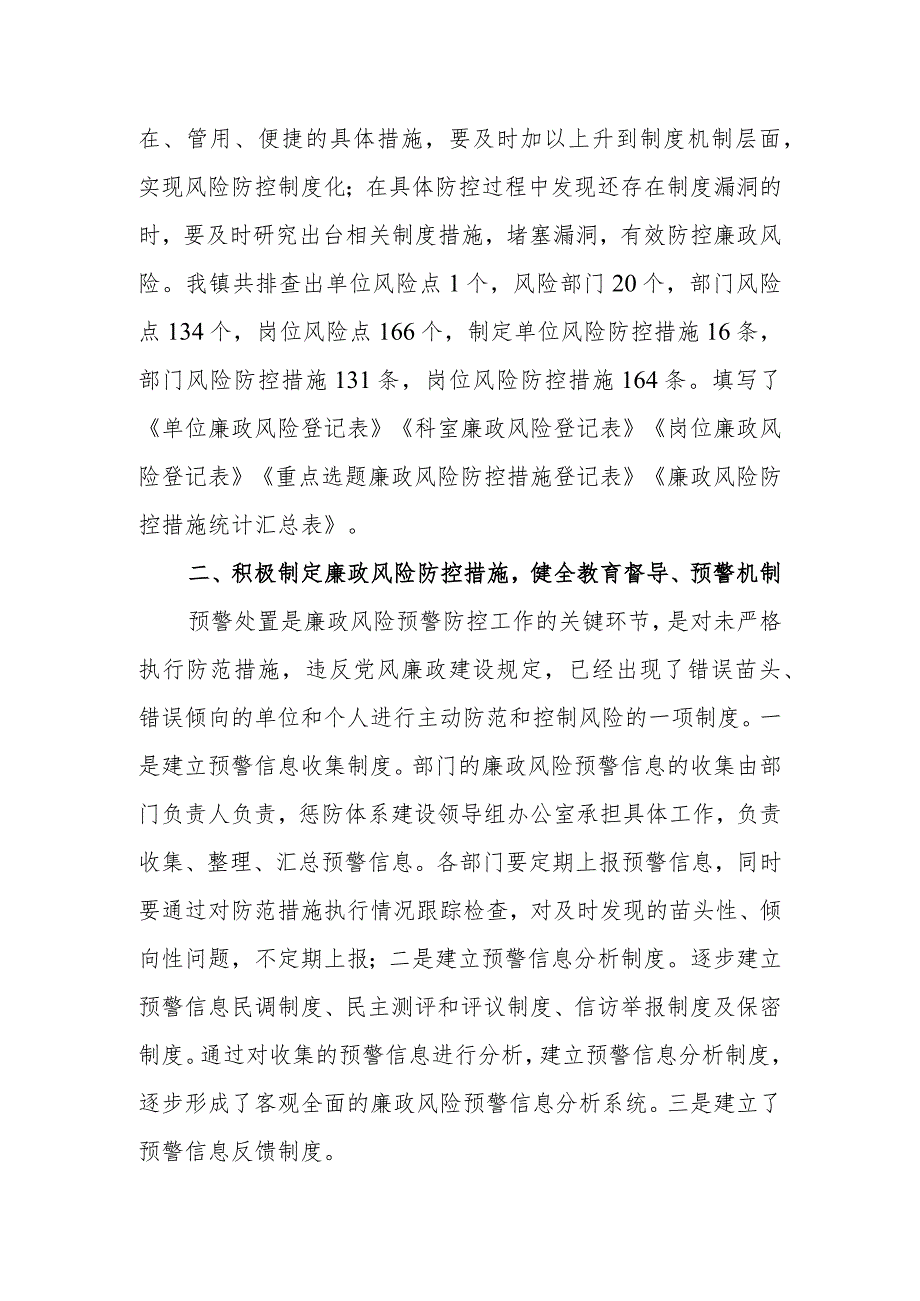 在、管用、便捷的具体措施，要及时加以上升到制度机制层面，
实现风险防控制度化；在具体防控过程中发现还存在制度漏洞的
时，要及时研究出台相关制度措施，堵塞漏洞，有效防控廉政风
险。我镇共排查出单位风险点 1 个，风险部门 20 个，部门风险
点 134 个，岗位风险点 166 个，制定单位风险防控措施 16 条，
部门风险防控措施 131 条，岗位风险防控措施 164 条。填写了
《单位廉政风险登记表》《科室廉政风险登记表》《岗位廉政风
险登记表》《重点选题廉政风险防控措施登记表》《廉政风险防
控措施统计汇总表》。
二、积极制定廉政风险防控措施，健全教育督导、预警机制
预警处置是廉政风险预警防控工作的关键环节，是对未严格
执行防范措施，违反党风廉政建设规定，已经出现了错误苗头、
错误倾向的单位和个人进行主动防范和控制风险的一项制度。一
是建立预警信息收集制度。部门的廉政风险预警信息的收集由部
门负责人负责，惩防体系建设领导组办公室承担具体工作，负责
收集、整理、汇总预警信息。各部门要定期上报预警信息，同时
要通过对防范措施执行情况跟踪检查，对及时发现的苗头性、倾
向性问题，不定期上报；二是建立预警信息分析制度。逐步建立
预警信息民调制度、民主测评和评议制度、信访举报制度及保密
制度。通过对收集的预警信息进行分析，建立预警信息分析制度，
逐步形成了客观全面的廉政风险预警信息分析系统。三是建立了
预警信息反馈制度。